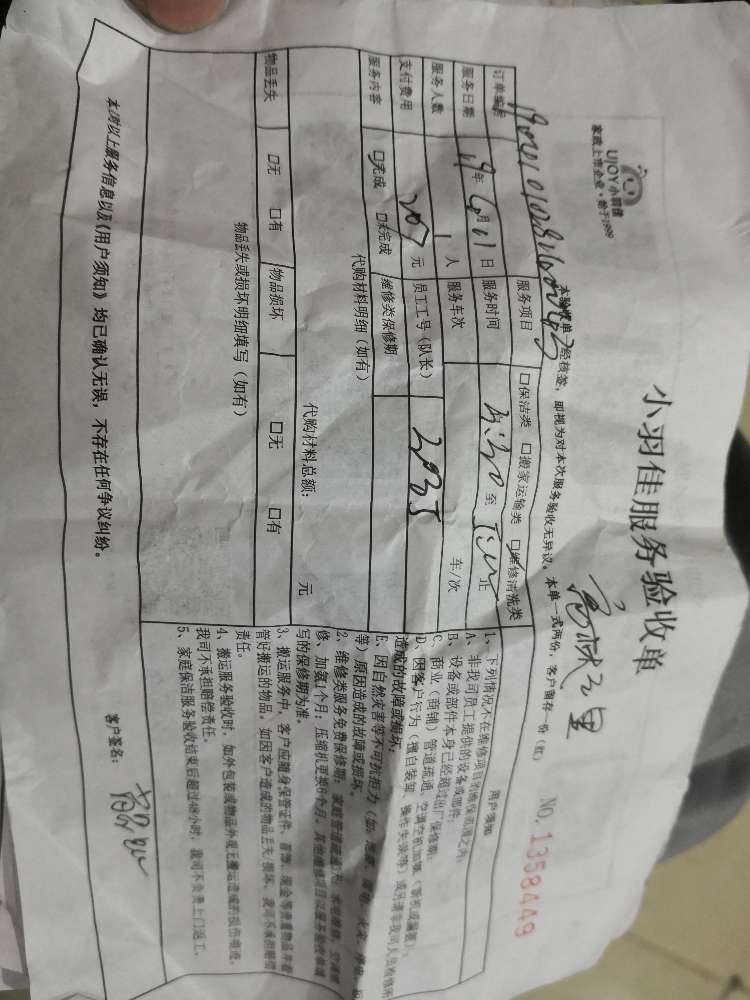 UJOY小羽佳
家政上市企业·始于1999
小羽佳服务验收单
NO.1358449
本验收单经核签，即视为对本次服务验收无异议。本单一式两份，客户留存一份（红）
订单编号
服务项目 □保洁类 □搬家运输类 □维修清洗类
服务日期 19年 6月 日 服务时间 至 止
服务人数 1 人 服务车次 车/次
支付费用 元 员工工号（队长）
服务内容 □完成 □未完成 维修类保修期
代购材料明细（如有）
代购材料总额： 元
物品丢失 □无 □有 物品损坏 □无 □有
物品丢失或损坏明细填写（如有）
用户须知
1、下列情况不在维修项目的维保范围之内：
A、非我司员工提供的设备或部件；
B、设备或部件本身已经超过出厂保修期；
C、商业（商铺）管道疏通、空调空机加氟（新机或漏氟）；
D、因客户行为（擅自装卸、操作失误等）或另请非我司人员检修所
造成的故障或损坏；
E、因自然灾害等不可抗拒力（如：地震、
等）原因造成的故障或损坏。
2、维修类服务免费保修期：家庭管道疏通
修、加氟1个月；压缩机更换6个月。其他维修项目以服务验收单填
写的保修期为准。
3、搬运服务中，客户应随身保管证件、首饰、现金等贵重物品并看
管好搬运的物品。如因客户造成的物品丢失/损坏，我司不承担赔偿
责任。
4、搬运服务验收时，如外包装或物品外观无搬运造成的损伤痕迹，
我司不承担赔偿责任。
5、家庭保洁服务验收结束后超过48小时，我司不负责上门返工。
本人对以上服务信息以及《用户须知》均已确认无误，不存在任何争议纠纷。
客户签名：